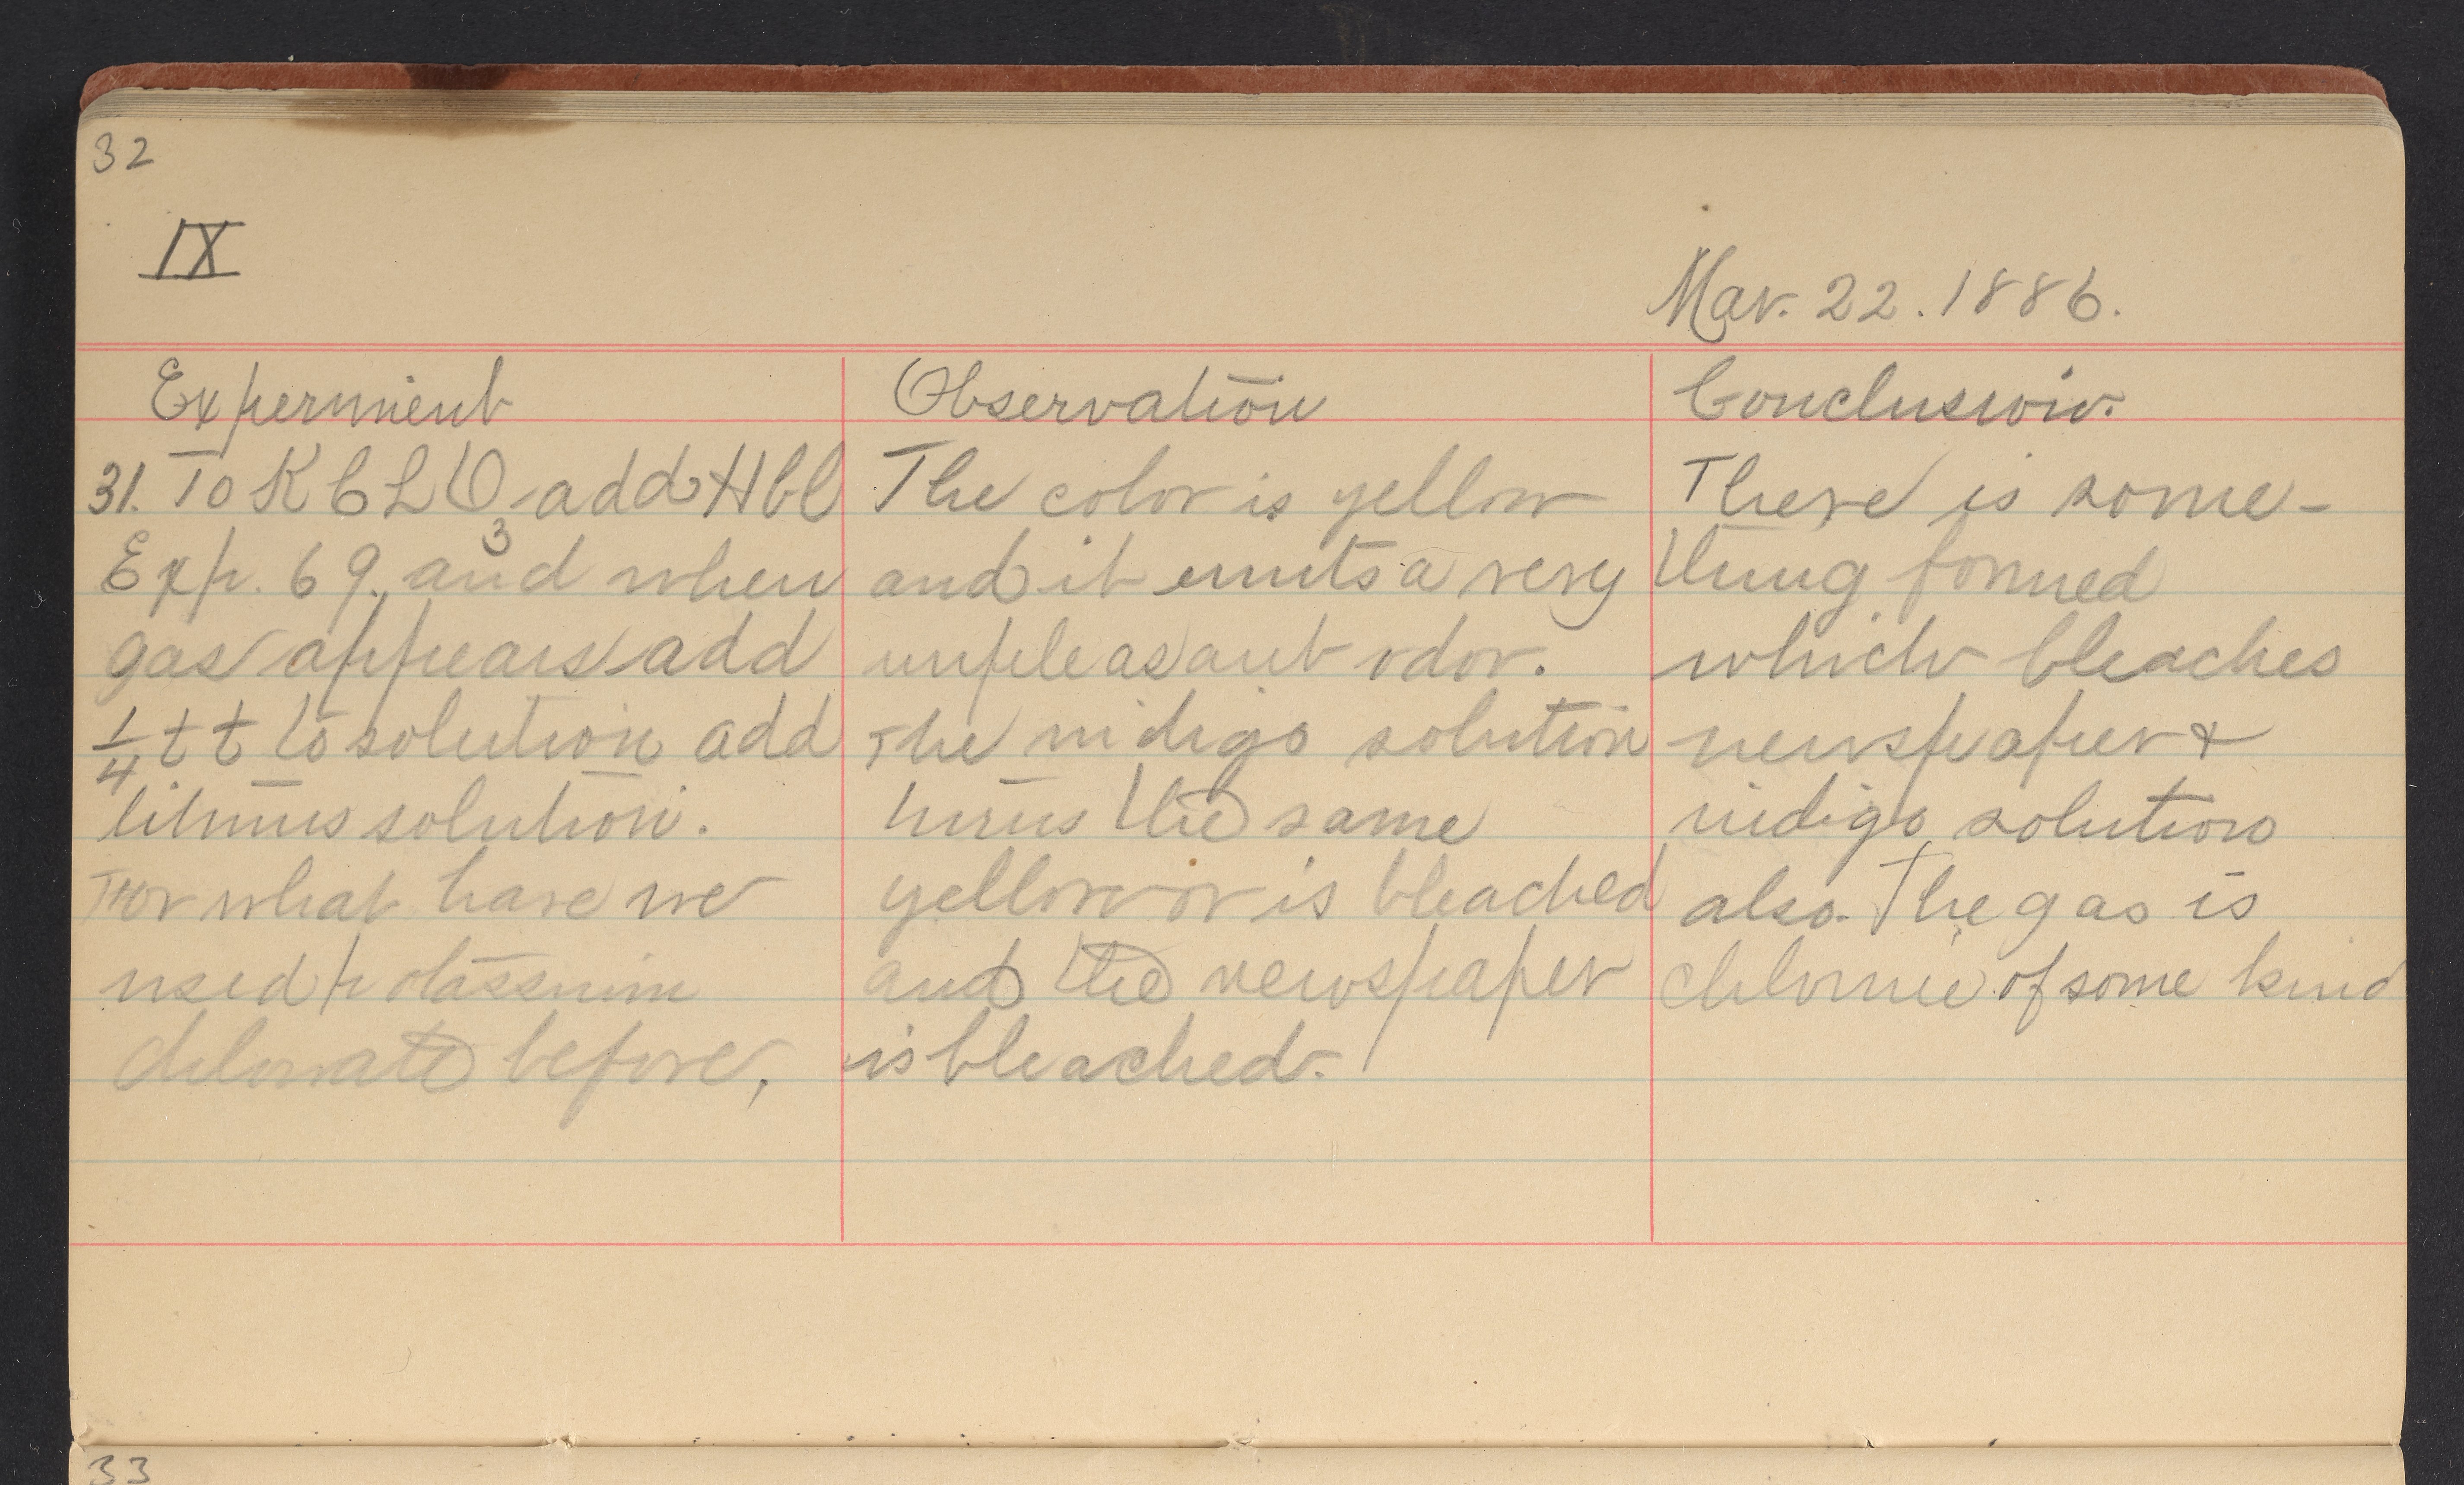 32
IX
Mar. 22. 1886.
Experiment
31. To KClO3 add HCl
Exp. 69. and when
gas appears add
1/4 t t to solution add
litmus solution.
For what have we
used potassium
chlorate before,
Observation
The color is yellow
and it emits a very
unpleasant odor.
The indigo solution
turns the same
yellow or is bleached
and the newspaper
is bleached.
Conclusion.
There is some-
thing formed
which bleaches
newspaper &
indigo solution
also. The gas is
chlorine of some kind
33